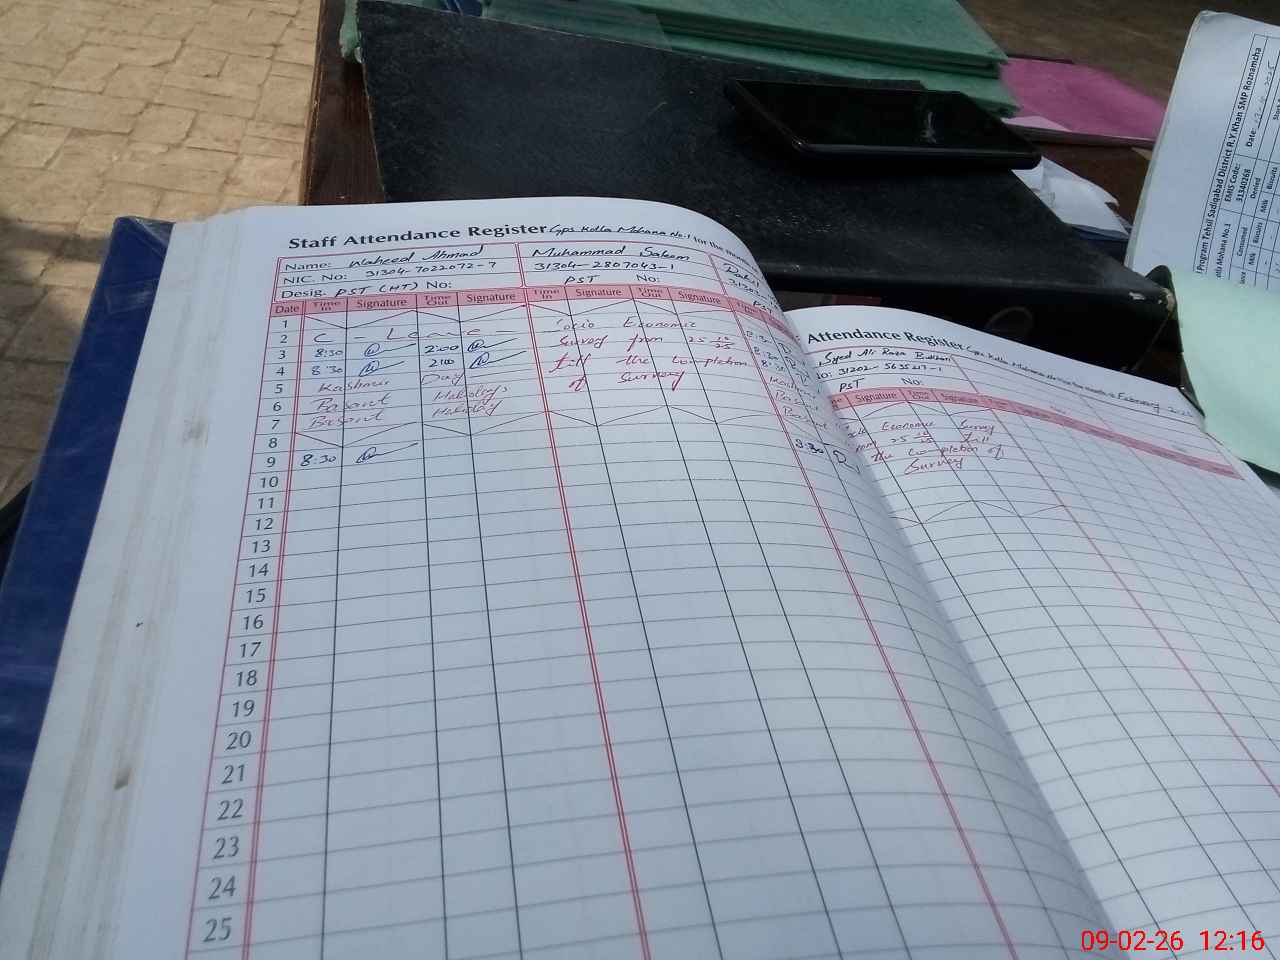 Staff Attendance Register Gps Kotla Mohana No.1 for the mon
Name: Waheed Ahmad
NIC. No: 31304-7022072-7
Desig. PST (HT) No:
Muhammad Saleem
31304-2807043-1
PST No:
Date Time In Signature Time Out Signature Time In Signature Time Out Signature
1
2 C - Leave -
3 8:30 2:00
4 8:30 2:00
5 Kashmir Day
6 Basant Holidays
7 Basant Holiday
8
9 8:30
10
11
12
13
14
15
16
17
18
19
20
21
22
23
24
25
Socio Economic
Survey from 25 10/25
till the completion
of Survey
8:30
8:30
Kashmir
Basant
Basant
8:30
Attendance Register Gps Kotla Mohana No.1 for the month of February
Syed Ali Raza Bukhari
31202-5635217-1
PST No:
Signature Time Out Signature
Economic Survey
from 25 10/25 till
the completion of
Survey
Program Tehsil Sadiqabad District R.Y.Khan SMP Roznamcha
Mohana No.1 EMIS Code: 31340268 Date:
Consumed Denied
Milk Biscuits Milk Biscuits
09-02-26 12:16